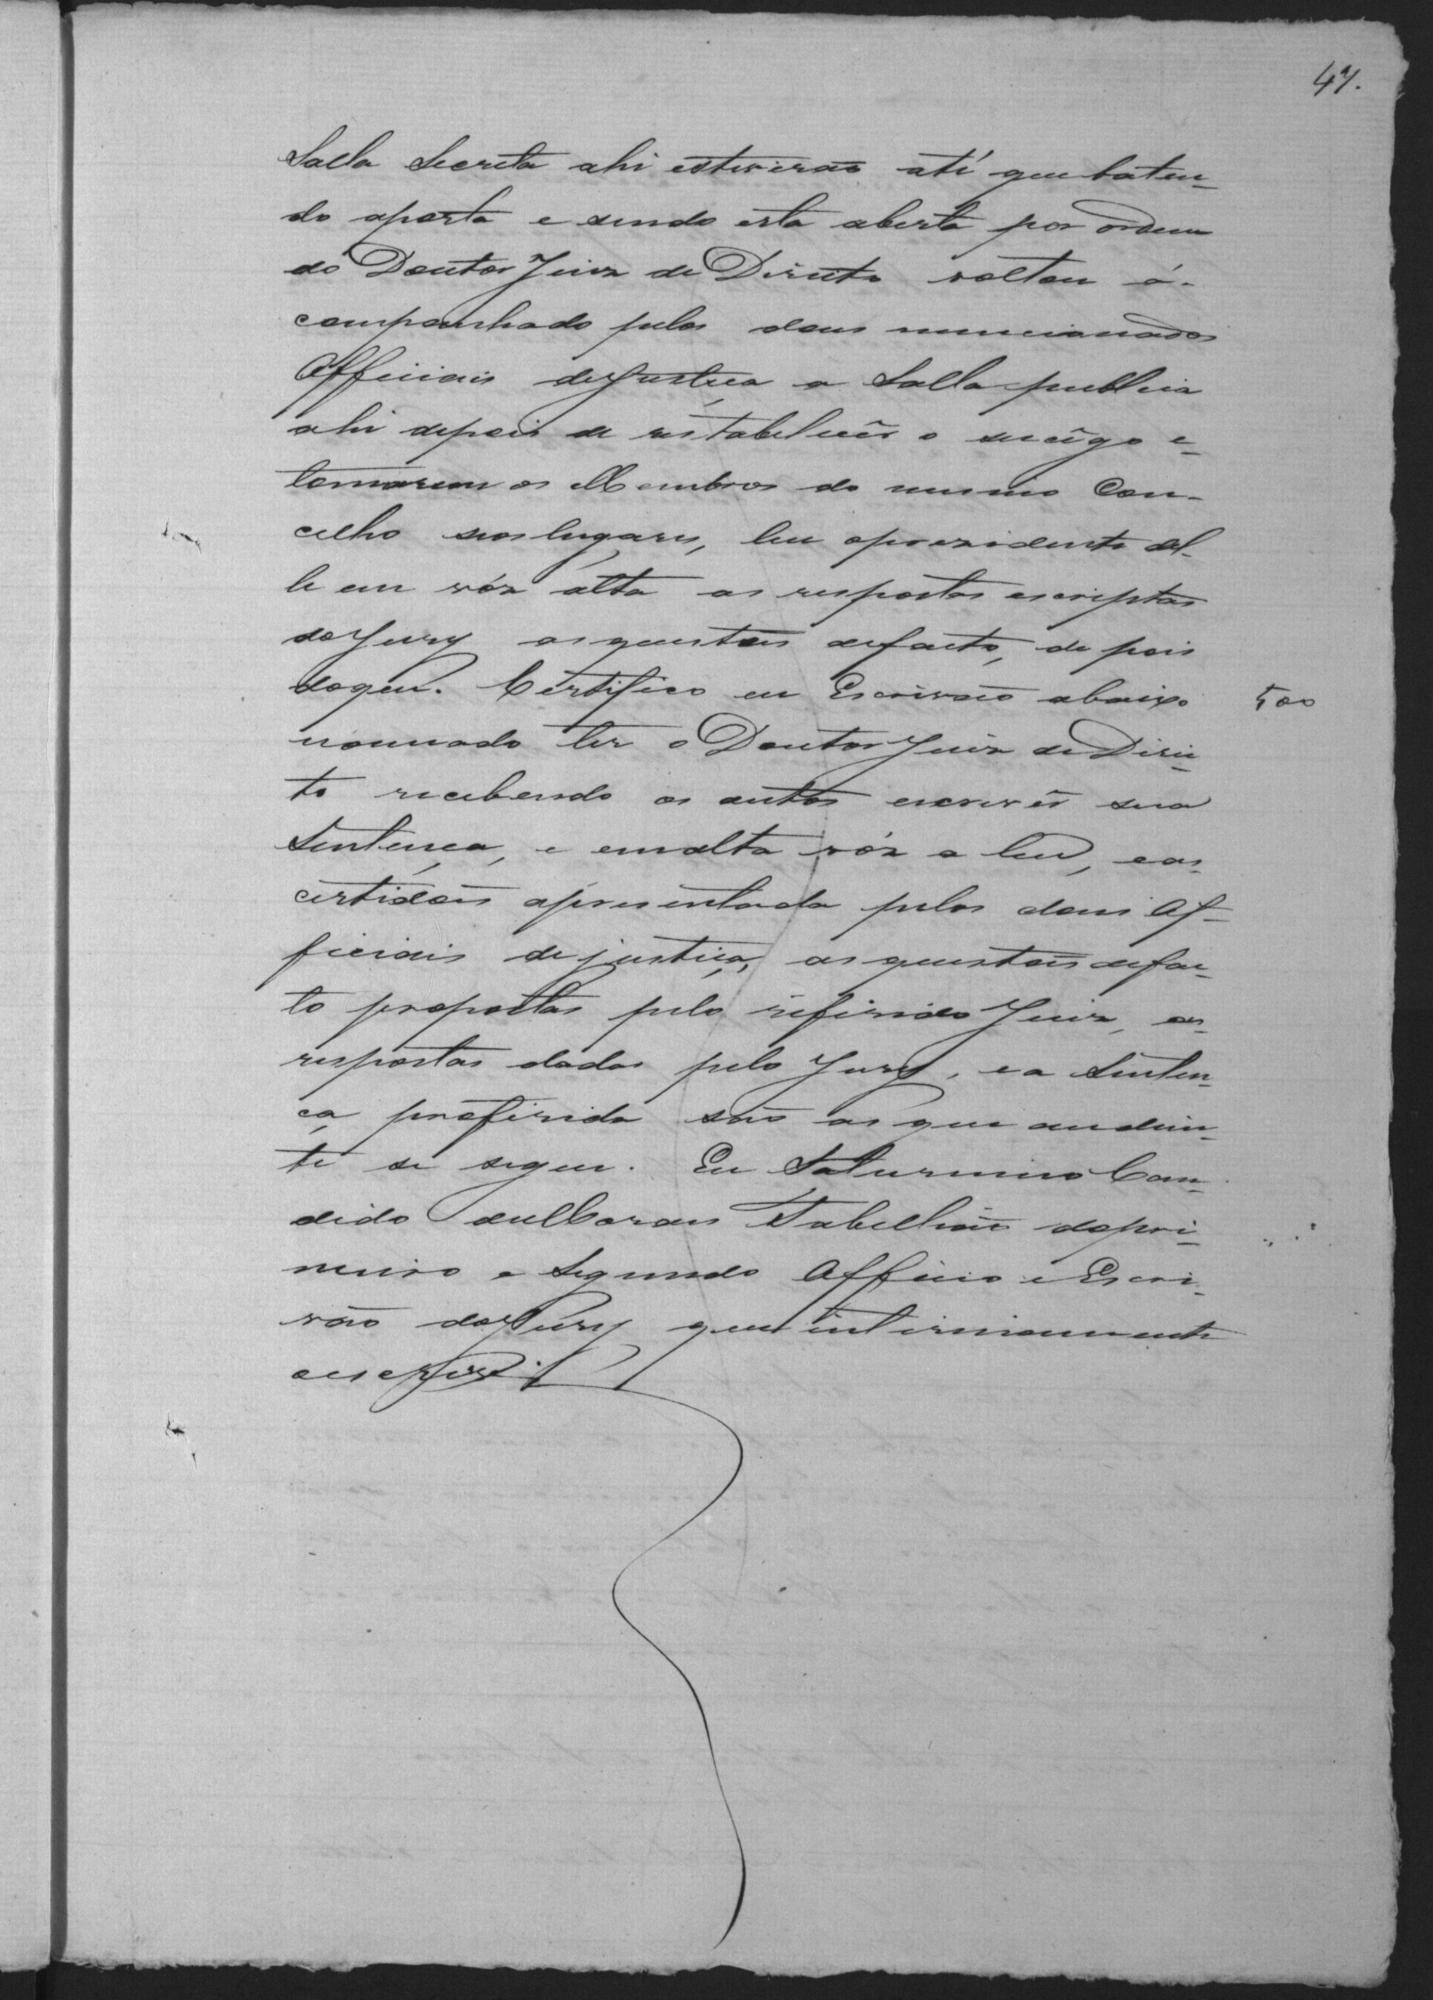 47.
Salla Secreta ahi estiverão até que baten-
do aporta e sendo esta aberta por ordem
do Doutor Juiz de Direito voltou á-
companhado pelos dous mencionados
Officiais de Justiça a Salla publica
ahi depois de restabellecêr o sucêgo e-
tomarem os Membros do mesmo Con-
celho seos lugares, leu oprezidente del-
le em vóz alta as respostas escriptas
do Jury as questões defacto, de pois
doque. Certifico eu Escrivão abaixo 500
nomeado ter o Doutor Juiz de Direi-
to recebendo os autos escrevêr sua
Sentença, e emalta vóz a leu, e as
certidões apresentada pelos dous Of-
ficiais de justiça, as questões defac-
to propostas pelo referido Juiz, as
respostas dadas pelo Jury, e a Senten-
ça proferida são as que audian-
te se segue. Eu Saturnino Can-
dido Tabellião dopri-
meiro e Segundo Officio e Escri-
vão do Jury que interinamente
escrevi